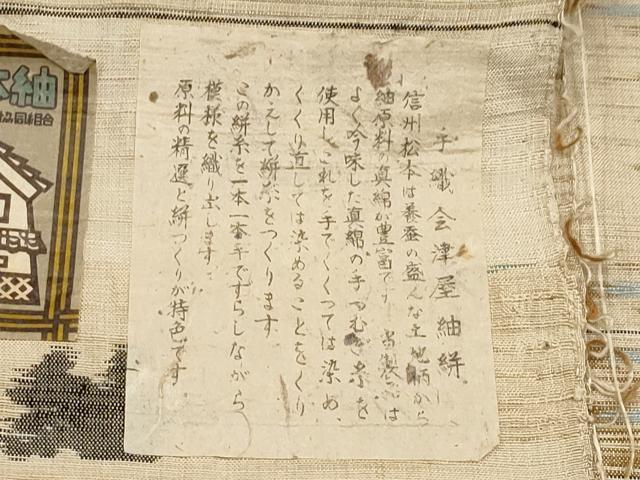 手織会津屋紬絣
信州松本は養蚕の盛んな土地柄から
紬原料の真綿が豊富です。当製品は
よく吟味した真綿の手つむぎ糸を
使用し、これを手でくくっては染め、
くくり直しては染めることをくり
かえして絣糸をつくります。
この絣糸を一本一本手ですらしながら
模様を織り出します。
原料の精選と絣つくりが特色です。
本紬
協同組合